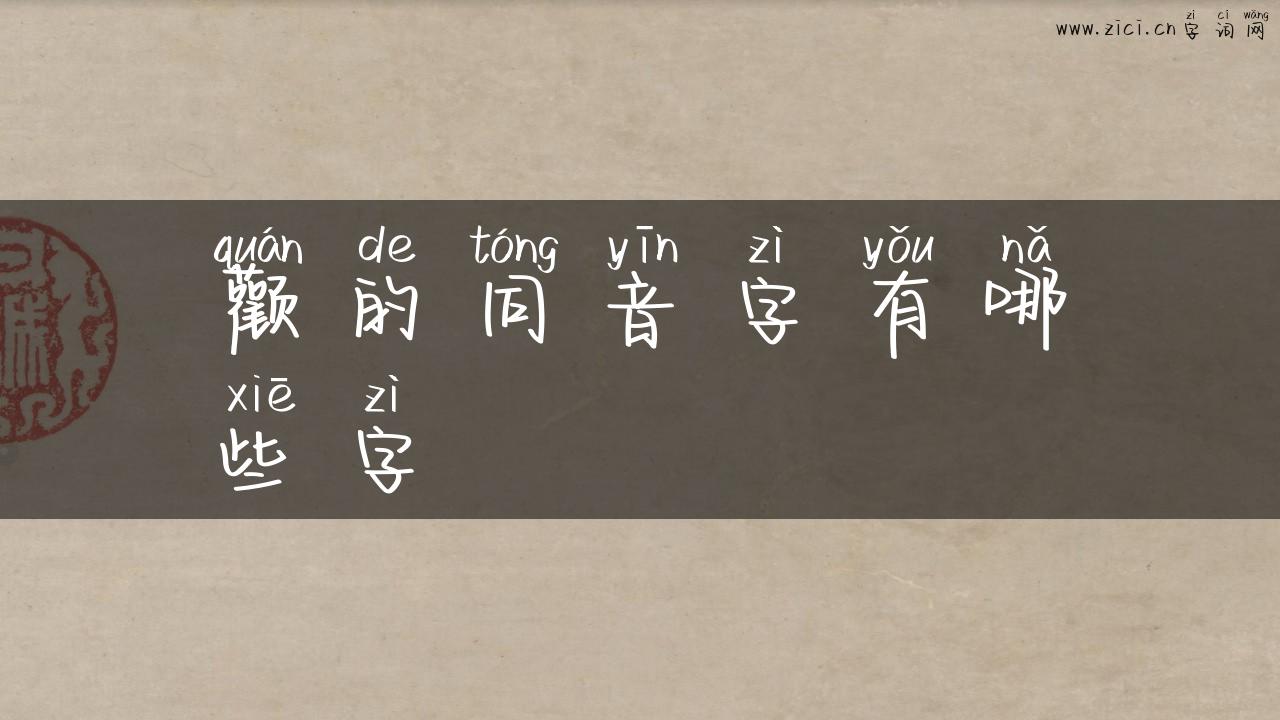 zì cí wǎng
www.zici.cn字词网
quán de tóng yīn zì yǒu nǎ
颧的同音字有哪
xiē zì
些字